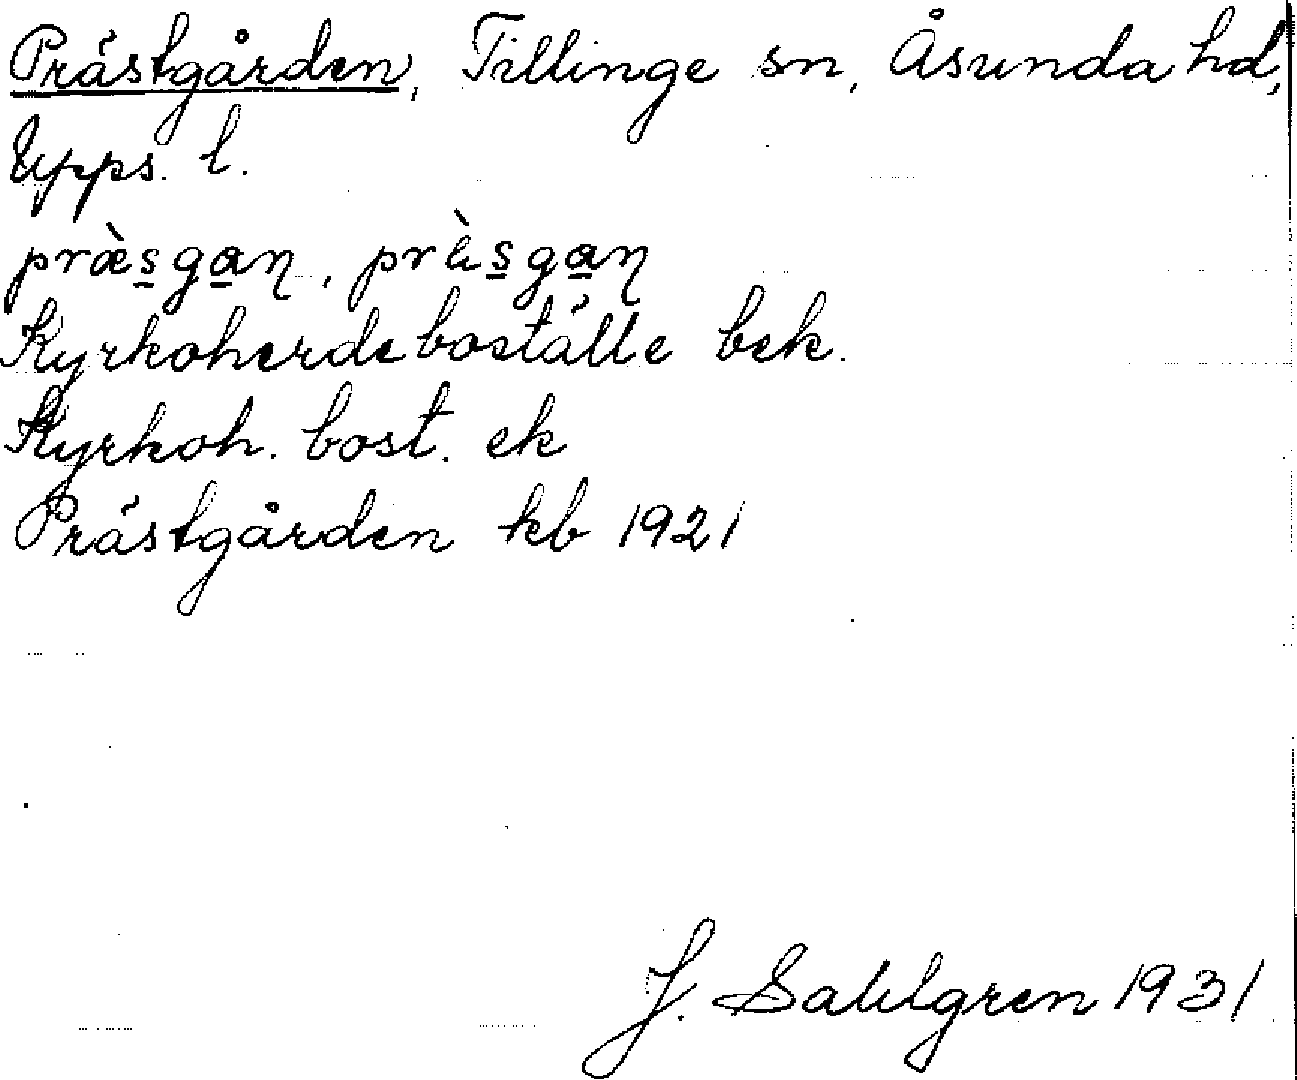 Prästgården, Tillinge sn, Åsunda hd,
Upps. l.
præ̀s̲ga̲ɳ, prä̀s̲ga̲ɳ
Kyrkoherdeboställe bek.
Kyrkoh. bost. ek
Prästgården kb 1921
J. Sahlgren 1931